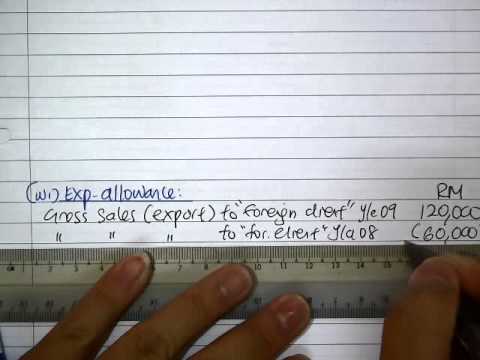 (W1) Exp-allowance:
RM
Gross sales (export) to "foreign client" y/e 09 120,000
" " " to "for. client" y/a 08 (60,000)
cm 1 2 3 4 5 6 7 8 9 10 11 12 13 14 15